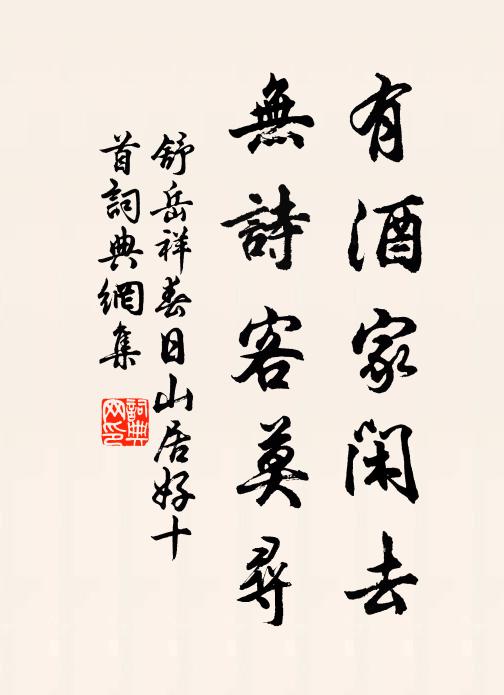 有酒家閑去
無詩客莫尋
舒岳祥春日山居好十
首詞典網集
詞典網印